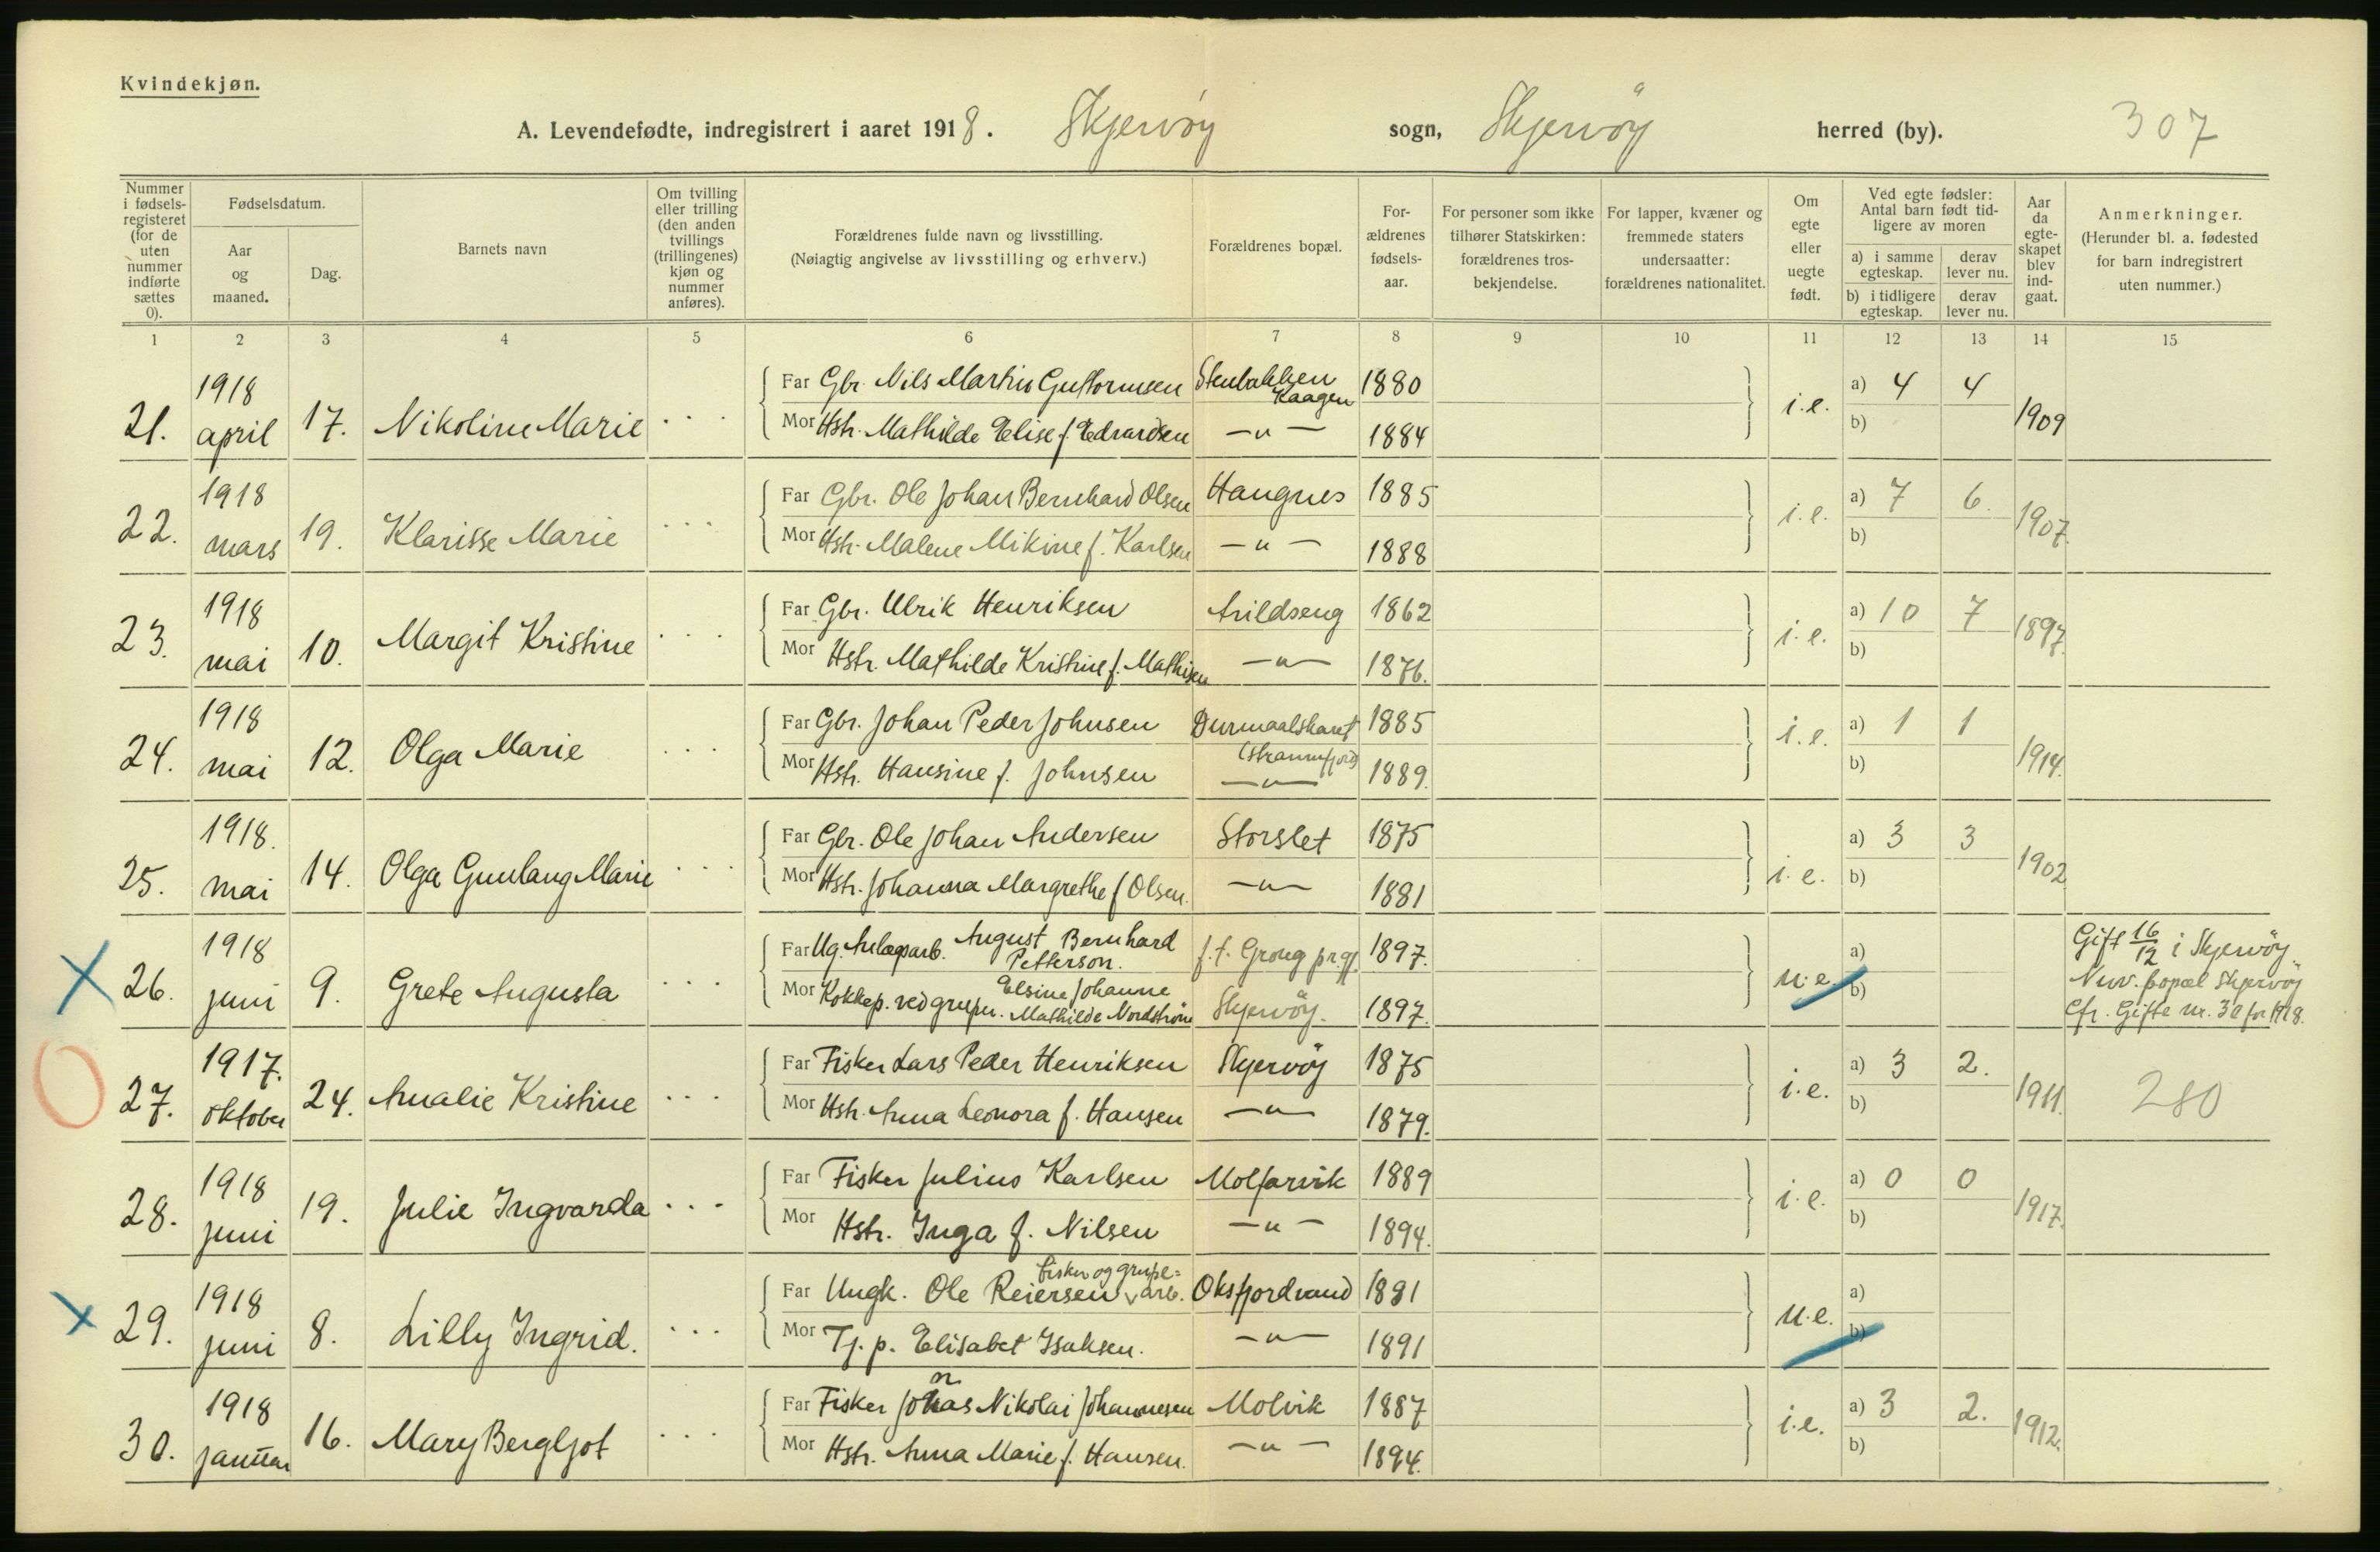 Kvindekjøn.
A. Levendefødte, indregistrert i aaret 1918. Skjervöy sogn, Skjervöy herred (by). 307
Nummer i fødsels-registeret (for de uten nummer indførte sættes 0).
Fødselsdatum.
Aar og maaned.
Dag.
Barnets navn
Om tvilling eller trilling (den anden tvillings (trillingenes) kjøn og nummer anføres).
Forældrenes fulde navn og livsstilling.
(Nøiagtig angivelse av livsstilling og erhverv.)
Forældrenes bopæl.
For-ældrenes fødsels-aar.
For personer som ikke tilhører Statskirken: forældrenes tros-bekjendelse.
For lapper, kvæner og fremmede staters undersaatter: forældrenes nationalitet.
Om egte eller uegte født.
Ved egte fødsler: Antal barn født tid-ligere av moren
a) i samme egteskap.
derav lever nu.
b) i tidligere egteskap.
derav lever nu.
Aar da egte-skapet blev ind-gaat.
Anmerkninger.
(Herunder bl. a. fødested for barn indregistrert uten nummer.)
1 2 3 4 5 6 7 8 9 10 11 12 13 14 15
21. 1918 april 17. Nikoline Marie . . .
Far Gbr. Nils Martin Guttormsen Stenbakken Kaagen 1880
Mor Hstr. Mathilde Elise f. Edvardsen —"— 1884
i.e. a) 4 4 b) 1909
22. 1918 mars 19. Klarisse Marie . . .
Far Gbr. Ole Johan Bernhard Olsen Haugnes 1885
Mor Hstr. Malene Mikine f. Karlsen —"— 1888
i.e. a) 7 6. b) 1907.
23. 1918 mai 10. Margit Kristine . . .
Far Gbr. Ulrik Henriksen Arildseng 1862
Mor Hstr. Mathilde Kristine f. Mathisen —"— 1876.
i.e. a) 10 7 b) 1897.
24. 1918 mai 12. Olga Marie . . .
Far Gbr. Johan Peder Johnsen Durmaalskaret (Straumfjord) 1885
Mor Hstr. Hansine f. Johnsen —"— 1889.
i.e. a) 1 1 b) 1914.
25. 1918. mai 14. Olga Gunlaug Marie . . .
Far Gbr. Ole Johan Andersen Storslet 1875
Mor Hstr. Johanna Margrethe f Olsen. —"— 1881
i.e. a) 3 3 b) 1902
26. 1918 juni 9. Grete Augusta . . .
Far Ug. Anlægsarb. August Bernhard Petterson. f.t. Grong pr.gj. 1897.
Mor Kokkep. ved grupen. Elsine Johanne Mathilde Nordström Skjervöy. 1897.
u.e. a) b)
Gift 16/12 i Skjervöy.
Nuv. bopæl Skjervöy
Cfr. Gifte nr. 30 for 1918.
27. 1917. oktober 24. Amalie Kristine . . .
Far Fisker Lars Peder Henriksen Skjervöy 1875
Mor Hstr. Anna Leonora f. Hansen —"— 1879.
i.e. a) 3 2. b) 1911. 280
28. 1918 juni 19. Julie Ingvarda . . .
Far Fisker Julius Karlsen Molfarvik 1889
Mor Hstr. Inga f. Nilsen —"— 1894.
i.e. a) 0 0 b) 1917.
29. 1918 juni 8. Lilly Ingrid. . . .
Far Ungk. Ole Reiersen fisker og grube=arb. Oksfjordvand 1881
Mor Tj. p. Elisabet Isaksen. —"— 1891
u.e. a) b)
30. 1918 januar 16. Mary Bergljot . . .
Far Fisker Jonas Nikolai Johannesen Molvik 1887
Mor Hstr. Anna Marie f. Hansen. —"— 1894.
i.e. a) 3 2. b) 1912.